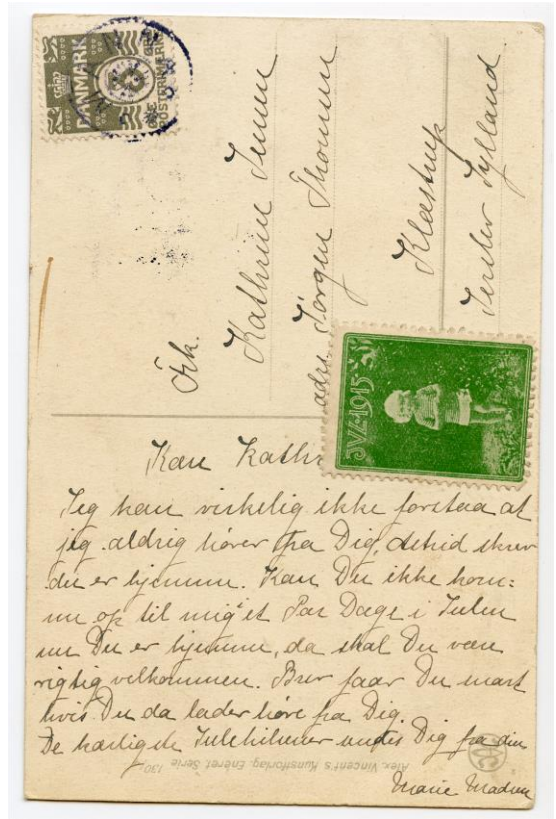 DANMARK
POSTFRIM ØRE
Frk.
Kathrine Jensen
adr. Jørgen Thomsen
Klæstrup
Jerslev Jylland.
JUL-1915
Kære Kathr
Jeg kan virkelig ikke forstaa at
jeg aldrig hører fra Dig,
du er hjemme. Kan Du ikke kom=
me op til mig et Par Dage i Julen
nu Du er hjemme, da skal Du være
rigtig velkommen. Brev faar Du snart
hvis Du da lader høre fra Dig.
De kærligste Julehilsener Dig fra din
Marie Madsen
Alex. Vincent's Kunstforlag. Eneret. Serie 130